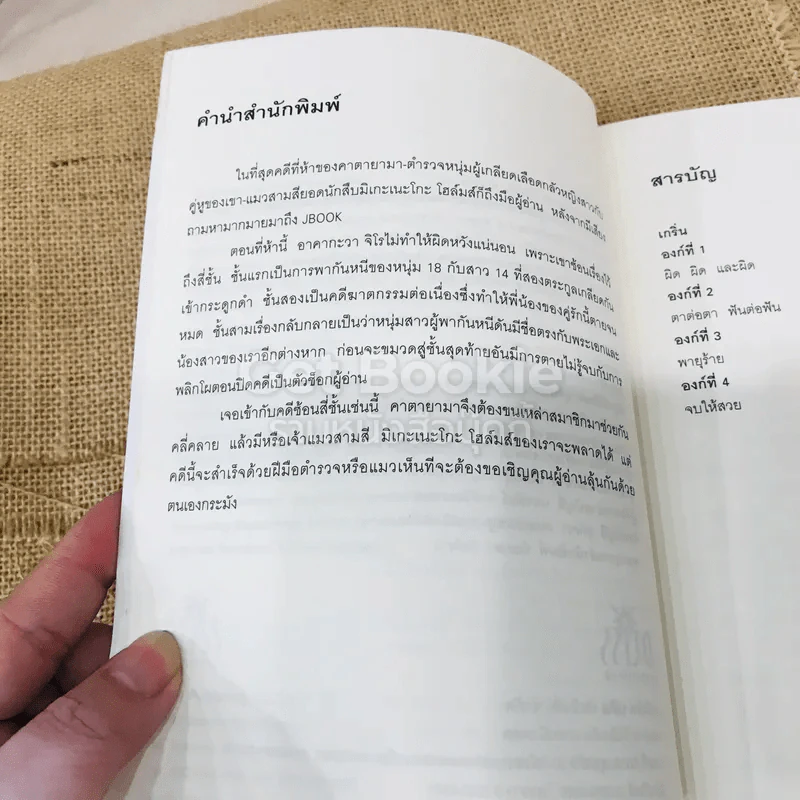 คำนำสำนักพิมพ์
ในที่สุดคดีที่ห้าของคาตายามา-ตำรวจหนุ่มผู้เกลียดเลือดกลัวหญิงสาวกับ
คู่หูของเขา-แมวสามสียอดนักสืบมิเกะเนะโกะ โฮล์มส์ก็ถึงมือผู้อ่าน หลังจากมีเสียง
ถามหามากมายมาถึง JBOOK
ตอนที่ห้านี้ อาคากะวา จิโรไม่ทำให้ผิดหวังแน่นอน เพราะเขาซ้อนเรื่องไว้
ถึงสี่ชั้น ชั้นแรกเป็นการพากันหนีของหนุ่ม 18 กับสาว 14 ที่สองตระกูลเกลียดกัน
เข้ากระดูกดำ ชั้นสองเป็นคดีฆาตกรรมต่อเนื่องซึ่งทำให้พี่น้องของคู่รักนี้ตายจน
หมด ชั้นสามเรื่องกลับกลายเป็นว่าหนุ่มสาวผู้พากันหนีดันมีชื่อตรงกับพระเอกและ
น้องสาวของเราอีกต่างหาก ก่อนจะขมวดสู่ชั้นสุดท้ายอันมีการตายไม่รู้จบกับการ
พลิกโผตอนปิดคดีเป็นตัวช็อกผู้อ่าน
เจอเข้ากับคดีซ้อนสี่ชั้นเช่นนี้ คาตายามาจึงต้องขนเหล่าสมาชิกมาช่วยกัน
คลี่คลาย แล้วมีหรือเจ้าแมวสามสี มิเกะเนะโกะ โฮล์มส์ของเราจะพลาดได้ แต่
คดีนี้จะสำเร็จด้วยฝีมือตำรวจหรือแมวเห็นทีจะต้องขอเชิญคุณผู้อ่านลุ้นกันด้วย
ตนเองกระมัง
Get Bookie
สารบัญ
เกริ่น
องก์ที่ 1
ผิด ผิด และผิด
องก์ที่ 2
ตาต่อตา ฟันต่อฟัน
องก์ที่ 3
พายุร้าย
องก์ที่ 4
จบให้สวย